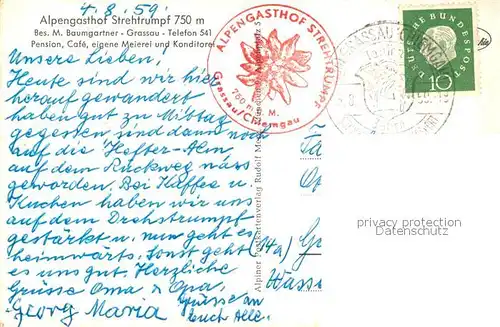 4.8.59.
Alpengasthof Strehtrumpf 750 m
Bes. M. Baumgartner - Grassau - Telefon 541
Pension, Café, eigene Meierei und Konditorei
Unsere Lieben!
Heute sind wir hier
herauf gewandert
haben gut zu Mittag
gegessen sind dann noch
auf die Hefter-Alm
auf dem Rückweg nass
geworden. Bei Kaffee u.
Kuchen haben wir uns
auf dem Drehstrumpf
gestärkt u. nun geht es
heimwärts. Sonst geht
es uns gut. Herzliche
Grüsse Oma & Opa,
Georg Maria
Grüsse an
Euch Alle.
ALPENGASTHOF STREHTRUMPF
750 M.
Grassau/Chiemgau
Alpiner Postkartenverlag Rudolf
DEUTSCHE BUNDESPOST
10
Fa
(14a)
Wass
privacy protection
Datenschutz